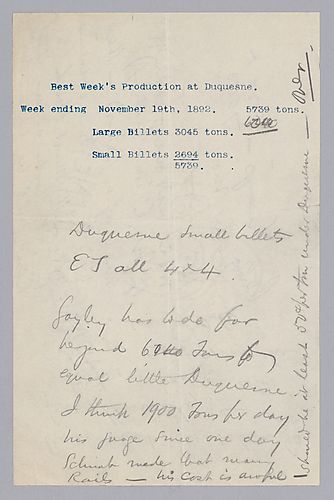 Best Week's Production at Duquesne.
Week ending November 19th, 1892. 5739 tons.
6000
Large Billets 3045 tons.
Small Billets 2694 tons.
5739.
Duquesne small billets
ET all 4x4.
Gayley has to do far
beyond 6000 Tons to
equal little Duquesne.
I think 1900 Tons per day
his gage since one day
Schwab made that many
Rails — his cost is awful —
should be at least 50¢ per ton under Duquesne —
Over